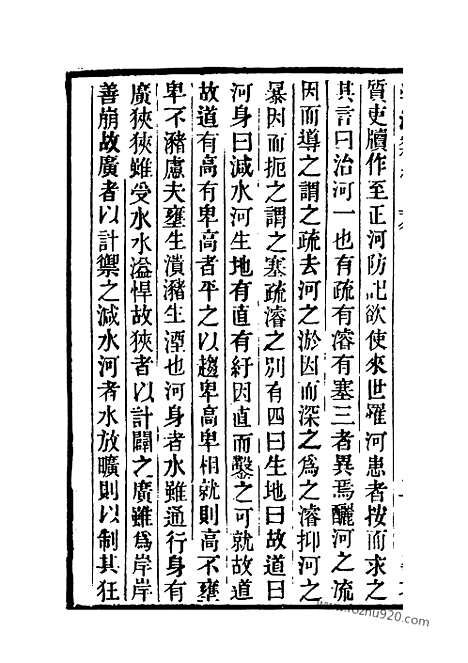 質吏牘作至正河防記欲使來世罹河患者按而求之
其言曰治河一也有疏有濬有塞三者異焉釃河之流
因而導之謂之疏去河之淤因而深之爲之濬抑河之
暴因而扼之謂之塞疏濬之別有四曰生地曰故道曰
河身曰減水河生地有直有紆因直而鑿之可就故道
故道有高有卑高者平之以趨卑高卑相就則高不壅
卑不豬慮夫壅生潰豬生堙也河身者水雖通行身有
廣狹狹雖受水水溢悍故狹者以計闢之廣雖爲岸岸
善崩故廣者以計禦之減水河者水放曠則以制其狂
www.fozhu920.com